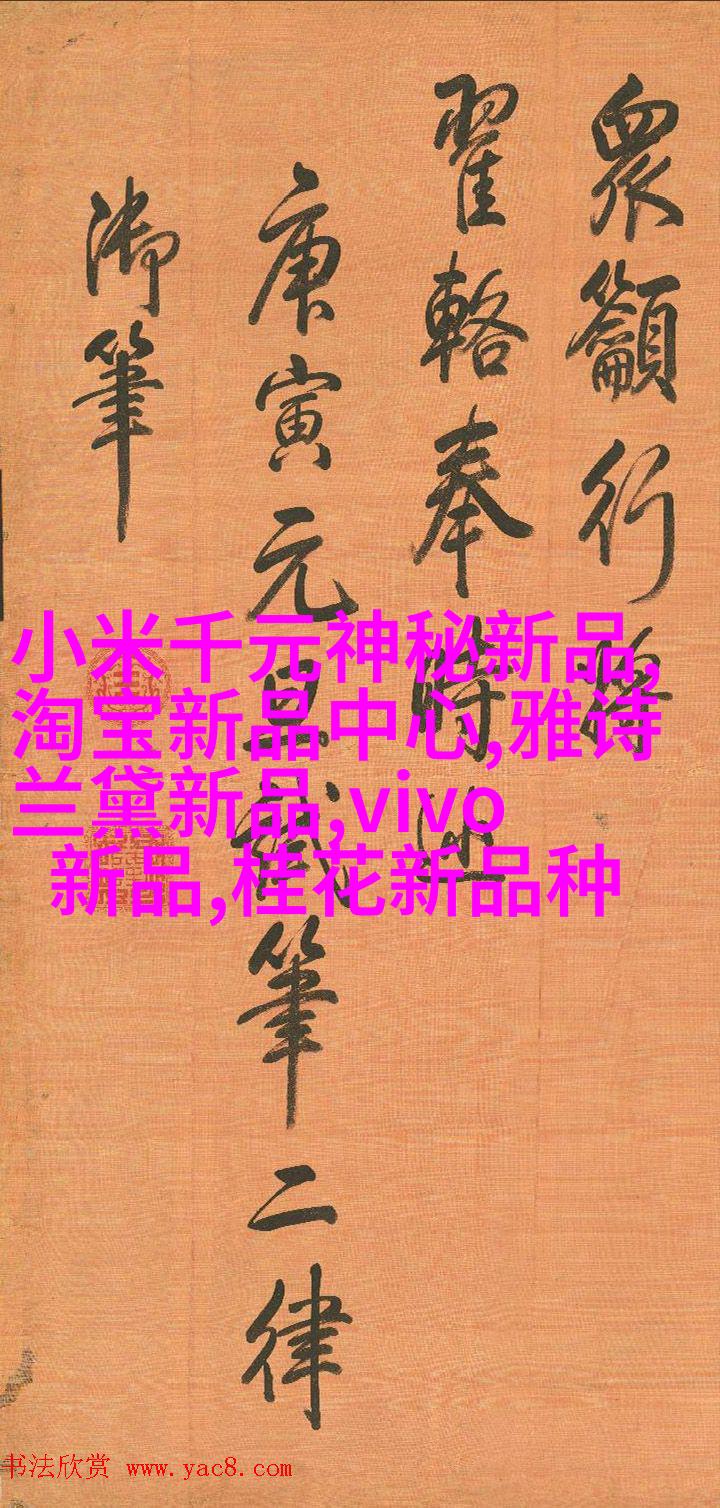 衆籲行將
翟輅奉時巡
庚寅元旦試筆二律
御筆
小米千元神秘新品,
淘宝新品中心,雅诗
兰黛新品,vivo
新品,桂花新品种
书法欣赏 www.yac8.com